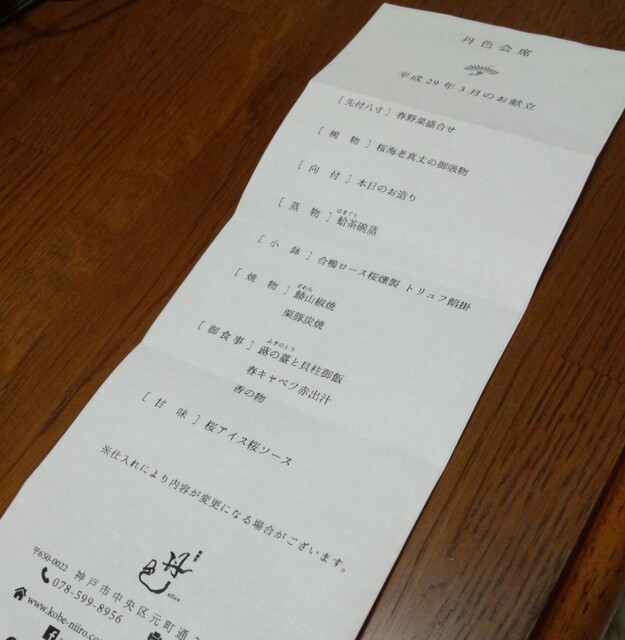 丹色会席
平成29年3月のお献立
[先付八寸] 春野菜盛合せ
[椀物] 桜海老真丈の御吸物
[向付] 本日のお造り
はまぐり
[蒸物] 蛤茶碗蒸
[小鉢] 合鴨ロース桜燻製 トリュフ餡掛
さわら
[焼物] 鰆山椒焼
栗豚炭焼
ふきのとう
[御食事] 蕗の薹と貝柱御飯
春キャベツ赤出汁
香の物
[甘味] 桜アイス桜ソース
※仕入れにより内容が変更になる場合がございます。
丹色
niiro
〒650-0022 神戸市中央区元町通
078-599-8956
www.kobe-niiro.co